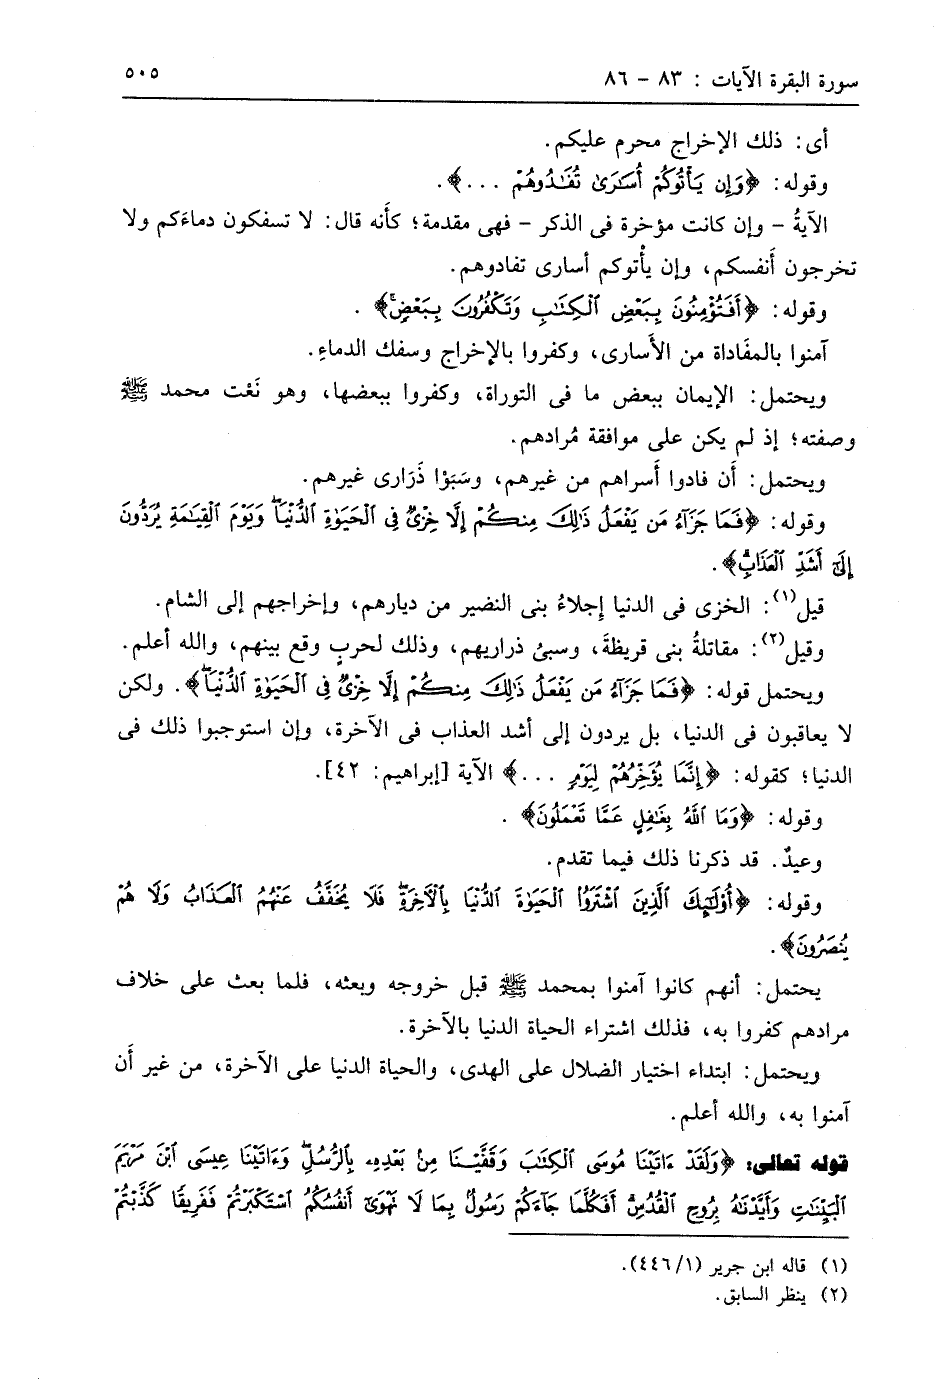 سورة البقرة الآيات : ٨٣ - ٨٦ ٥٠٥
أى: ذلك الإخراج محرم عليكم.
وقوله: ﴿وَإِن يَأْتُوكُمْ أُسَٰرَىٰ تُفَٰدُوهُمْ ...﴾.
الآيةُ - وإن كانت مؤخرة فى الذكر - فهى مقدمة؛ كأَنه قال: لا تسفكون دماءَكم ولا
تخرجون أَنفسكم، وإن يأْتوكم أسارى تفادوهم.
وقوله: ﴿أَفَتُؤْمِنُونَ بِبَعْضِ ٱلْكِتَٰبِ وَتَكْفُرُونَ بِبَعْضٍۚ﴾ .
آمنوا بالمفَاداة من الأَسارى، وكفروا بالإخراج وسفك الدماءِ.
ويحتمل: الإيمان ببعض ما فى التوراة، وكفروا ببعضها، وهو نَعْت محمد ﷺ
وصفته؛ إذ لم يكن على موافقة مُرادهم.
ويحتمل: أَن فادوا أَسراهم من غيرهم، وسَبَوْا ذَرَارى غيرهم.
وقوله: ﴿فَمَا جَزَآءُ مَن يَفْعَلُ ذَٰلِكَ مِنكُمْ إِلَّا خِزْىٌ فِى ٱلْحَيَوٰةِ ٱلدُّنْيَاۖ وَيَوْمَ ٱلْقِيَٰمَةِ يُرَدُّونَ
إِلَىٰٓ أَشَدِّ ٱلْعَذَابِۗ﴾.
قيل(١): الخزى فى الدنيا إجلاءُ بنى النضير من ديارهم، وإخراجهم إلى الشام.
وقيل(٢): مقاتلةُ بنى قريظةَ، وسبىُ ذراريهم، وذلك لحربٍ وقع بينهم، والله أعلم.
ويحتمل قوله: ﴿فَمَا جَزَآءُ مَن يَفْعَلُ ذَٰلِكَ مِنكُمْ إِلَّا خِزْىٌ فِى ٱلْحَيَوٰةِ ٱلدُّنْيَاۖ﴾. ولكن
لا يعاقبون فى الدنيا، بل يردون إلى أشد العذاب فى الآخرة، وإن استوجبوا ذلك فى
الدنيا؛ كقوله: ﴿إِنَّمَا يُؤَخِّرُهُمْ لِيَوْمٍ ...﴾ الآية [إبراهيم: ٤٢].
وقوله: ﴿وَمَا ٱللَّهُ بِغَٰفِلٍ عَمَّا تَعْمَلُونَ﴾ .
وعيدٌ. قد ذكرنا ذلك فيما تقدم.
وقوله: ﴿أُو۟لَٰٓئِكَ ٱلَّذِينَ ٱشْتَرَوُا۟ ٱلْحَيَوٰةَ ٱلدُّنْيَا بِٱلْـَٔاخِرَةِۖ فَلَا يُخَفَّفُ عَنْهُمُ ٱلْعَذَابُ وَلَا هُمْ
يُنصَرُونَ﴾.
يحتمل: أنهم كانوا آمنوا بمحمد ﷺ قبل خروجه وبعثه، فلما بعث على خلاف
مرادهم كفروا به، فذلك اشتراء الحياة الدنيا بالآخرة.
ويحتمل: ابتداء اختيار الضلال على الهدى، والحياة الدنيا على الآخرة، من غير أَن
آمنوا به، والله أعلم.
قوله تعالى: ﴿وَلَقَدْ ءَاتَيْنَا مُوسَى ٱلْكِتَٰبَ وَقَفَّيْنَا مِنۢ بَعْدِهِۦ بِٱلرُّسُلِۖ وَءَاتَيْنَا عِيسَى ٱبْنَ مَرْيَمَ
ٱلْبَيِّنَٰتِ وَأَيَّدْنَٰهُ بِرُوحِ ٱلْقُدُسِۗ أَفَكُلَّمَا جَآءَكُمْ رَسُولٌۢ بِمَا لَا تَهْوَىٰٓ أَنفُسُكُمُ ٱسْتَكْبَرْتُمْ فَفَرِيقًا كَذَّبْتُمْ
(١) قاله ابن جرير (٤٤٦/١).
(٢) ينظر السابق.